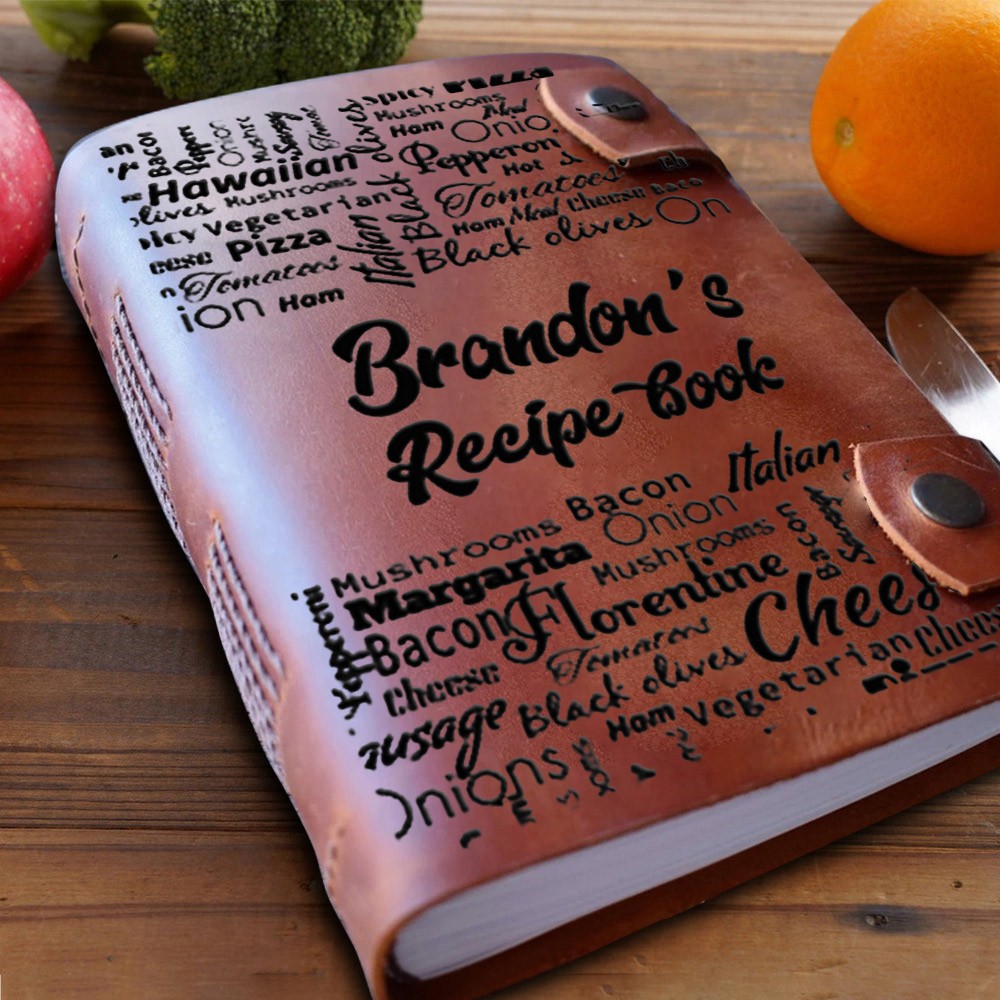 spicy Pizza
Mushrooms Meal
Ham Onio
an Bacon Onion
Hawaiian olives Pepperon
Hot
olives Mushrooms Black Tomatoes
Ham Meal Cheese Baco
Vegetarian Italian Black olives On
Pizza
Tomatoes
ion Ham
Brandon's
Recipe Book
Mushrooms Bacon Italian
Margarita Onion
Mushrooms Bacon
Bacon Florentine Chees
Cheese Tomatoes
ausage Black olives Vegetarian Chees
Ham
Onions